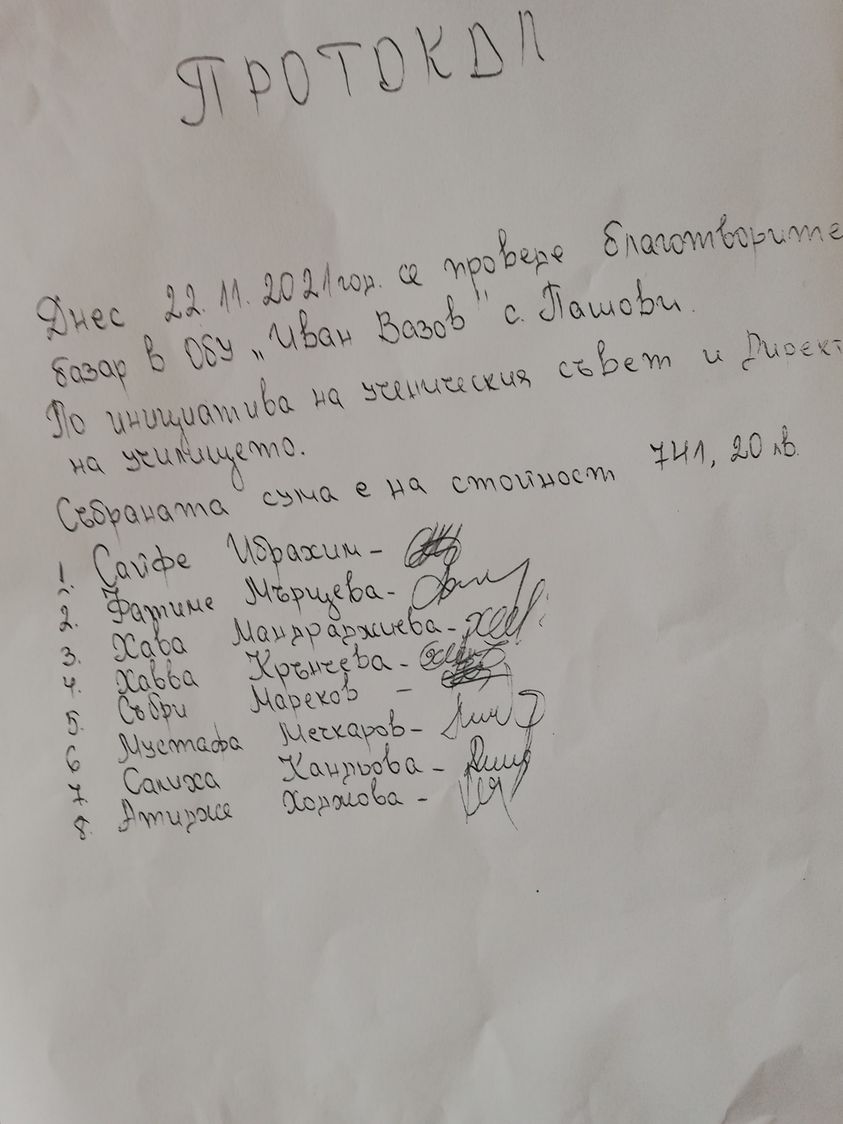 ПРОТОКОЛ
Днес 22.11.2021год. се проведе благотворите
базар в ОбУ „Иван Вазов" с. Пашови.
По инициатива на ученическия съвет и Директ
на училището.
Събраната сума е на стойност 741,20 лв.
1. Сайфе Ибрахим -
2. Фатиме Мърцева -
3. Хава Мандраджиева -
4. Хавва Крънчева -
5. Събри Мареков -
6 Мустафа Мечкаров -
7. Салиха Кандьова -
8. Атидже Ходжова -